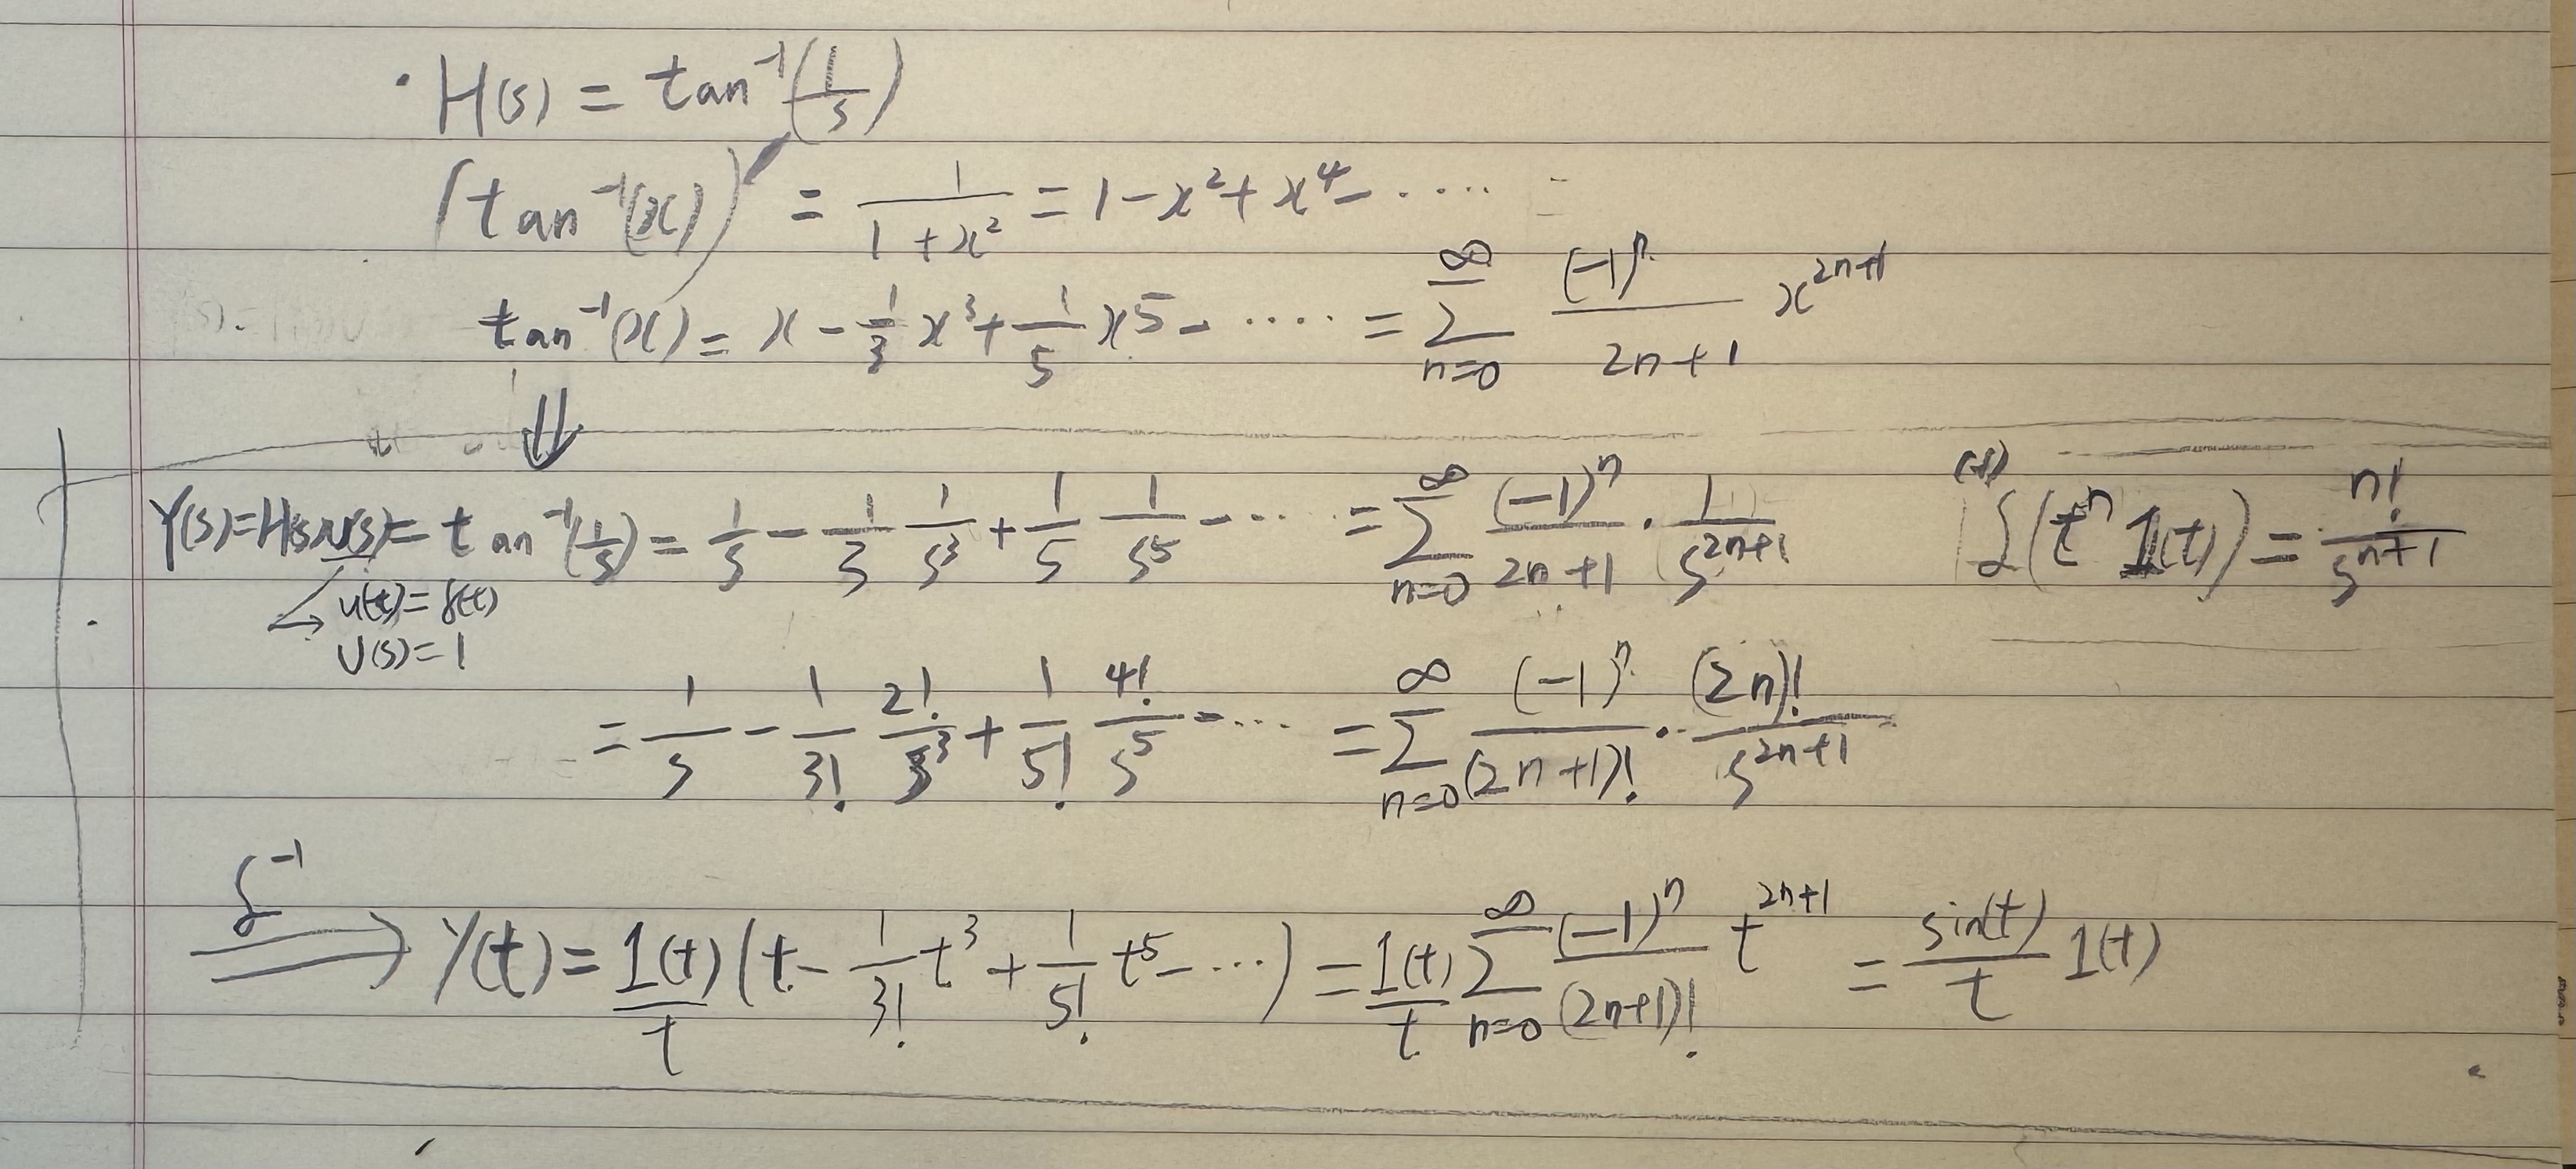 · H(s) = tan⁻¹(1/s)
(tan⁻¹(x))' = 1/(1+x²) = 1 - x² + x⁴ - ..... =
tan⁻¹(x) = x - 1/3 x³ + 1/5 x5 - ..... = ∑_{n=0}^{∞} (-1)ⁿ/(2n+1) x^{2n+1}
⇓
Y(s) = H(s)U(s) = tan⁻¹(1/s) = 1/s - 1/3 1/s³ + 1/5 1/s⁵ - .... = ∑_{n=0}^{∞} (-1)ⁿ/(2n+1) · 1/s^{2n+1}
ℒ(tⁿ 1(t)) = n!/s^{n+1}
u(t) = δ(t)
U(s) = 1
= 1/s - 1/3! 2!/s³ + 1/5! 4!/s⁵ - ... = ∑_{n=0}^{∞} (-1)ⁿ/(2n+1)! · (2n)!/s^{2n+1}
ℒ⁻¹
⟹ y(t) = 1(t)/t (t - 1/3! t³ + 1/5! t⁵ - ...) = 1(t)/t ∑_{n=0}^{∞} (-1)ⁿ/(2n+1)! t^{2n+1} = sin(t)/t 1(t)